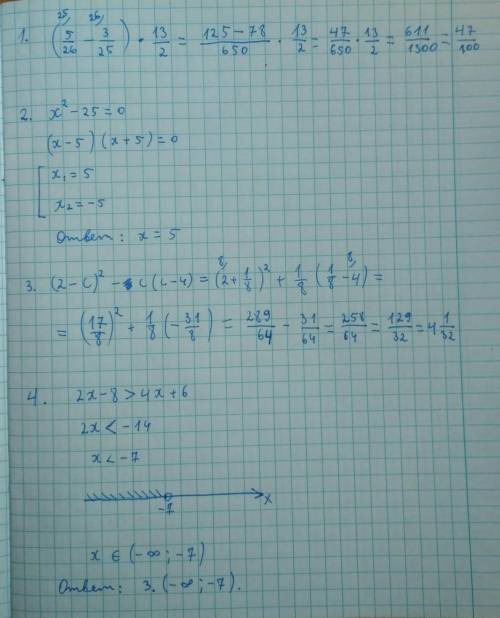 25, 26,
1. (5/26 - 3/25) · 13/2 = (125-78)/650 · 13/2 = 47/650 · 13/2 = 611/1300 = 47/100
2. x² - 25 = 0
(x-5) (x+5) = 0
[ x₁ = 5
x₂ = -5
Ответ: x = 5
3. (2-c)² - c(c-4) = (2+1/8)² + 1/8 (1/8 - 4) =
= (17/8)² + 1/8 (-31/8) = 289/64 - 31/64 = 258/64 = 129/32 = 4 1/32
4. 2x-8 > 4x+6
2x < -14
x < -7
-7 x
x ∈ (-∞; -7)
Ответ: 3. (-∞; -7).